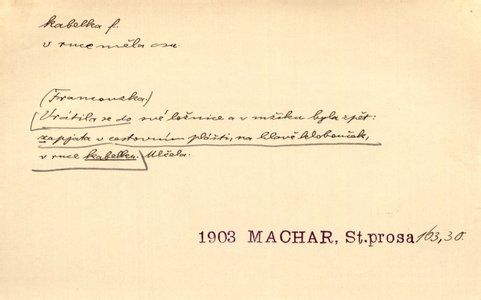 kabelka f.
v ruce měla
(Francouzka)
Vrátila se do své ložnice a v mžiku byla zpět:
zapjata v cestovním plášti, na hlavě klobouček,
v ruce kabelku. Mlčela.
1903 MACHAR, St.prosa 163,30.